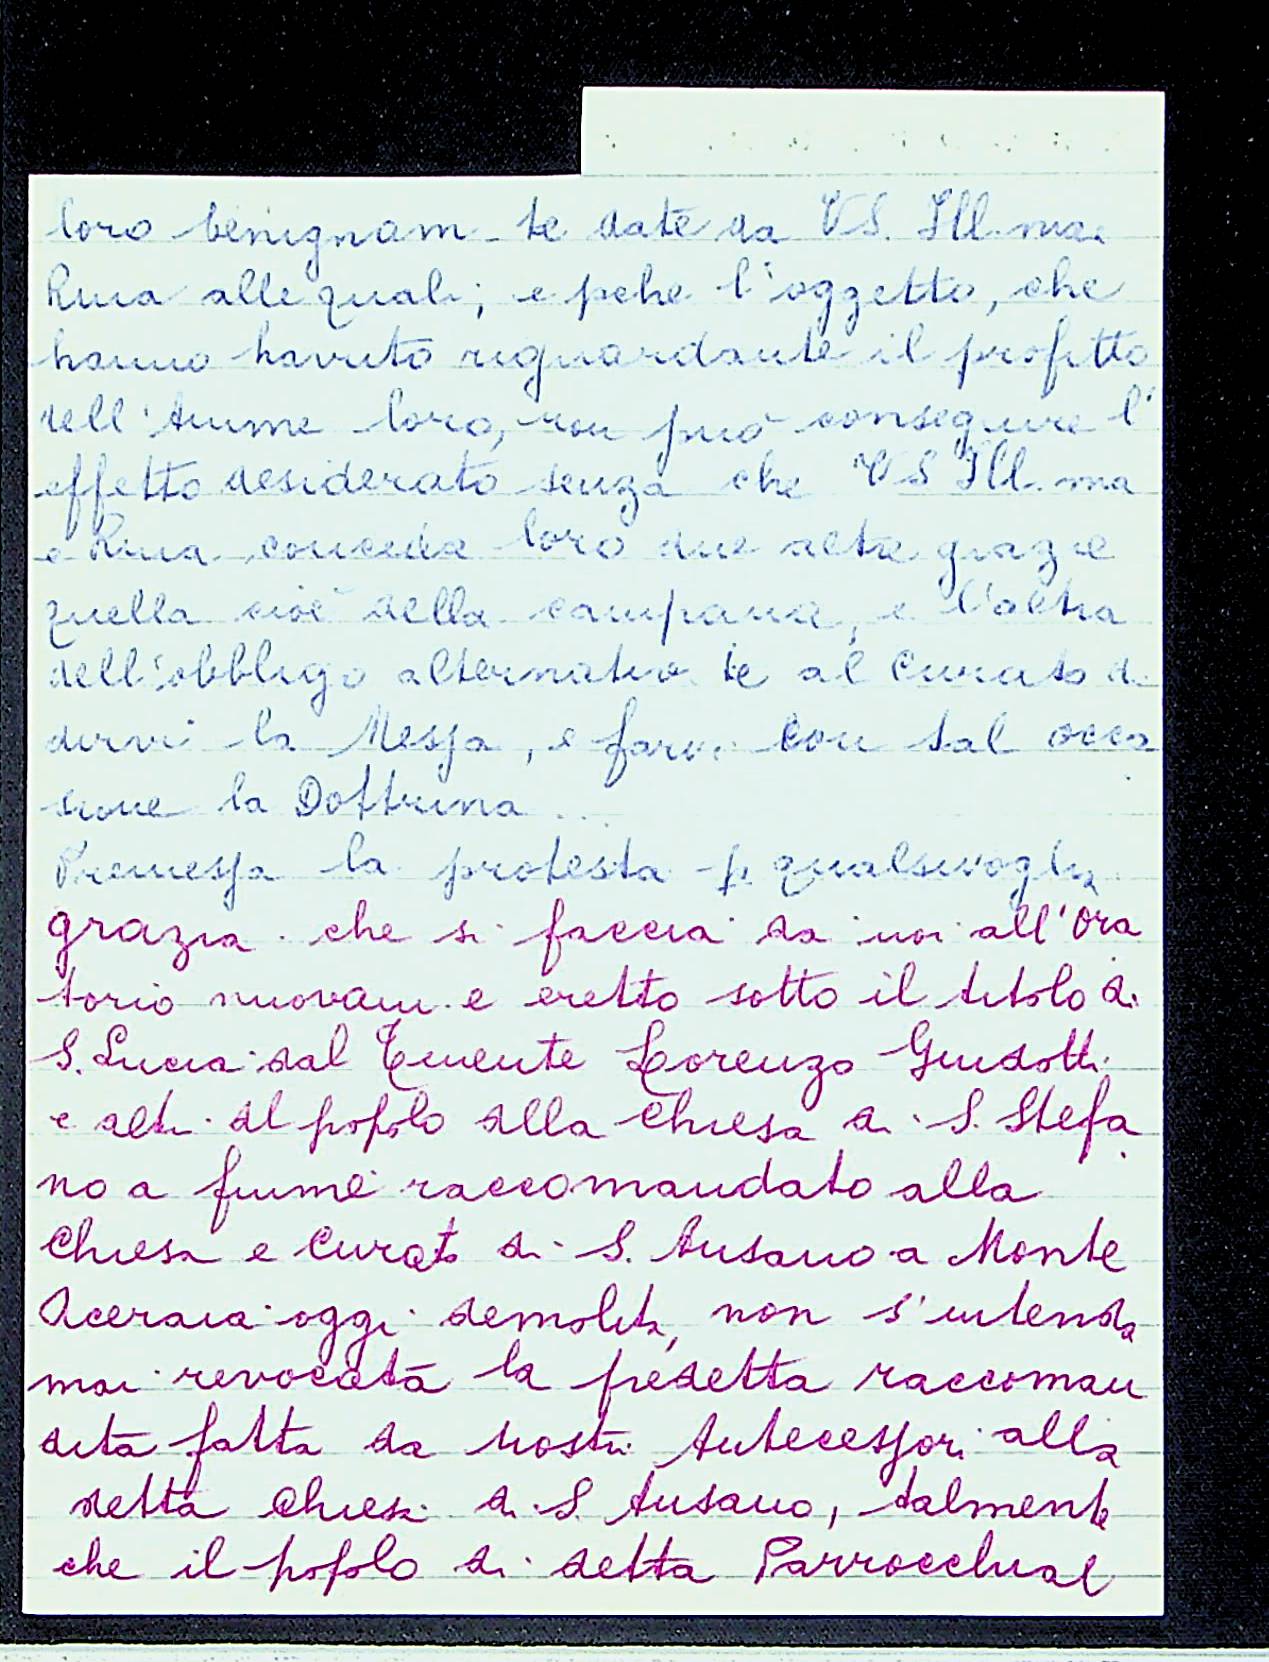 loro benignam-te date da VS. Ill.ma
Rma alle quali; e pche l'oggetto, che
hanno havuto riguardante il profitto
dell'Anime loro, non può conseguire l'
effetto desiderato senza che VS Ill.ma
e Rma conceda loro due altre grazie
quella cioè della campana, e l'altra
dell'obbligo alternativ.te al Curato di
dirvi la Messa, e farvi con tal occa
sione la Dottrina...
Premessa la protesta p. qualsivoglia
grazia che si faccia da noi all'Ora
torio nuovam.e eretto sotto il titolo di
S. Lucia dal Tenente Lorenzo Guidotti
e altri del popolo della Chiesa di S. Stefa
no a fiume raccomandato alla
Chiesa e Curato di S. Ansano a Monte
Aceraia oggi demolita, non s'intenda
mai revocata la predetta raccoman
dita fatta da nostri Antecessori alla
detta Chiesa di S. Ansano, talmente
che il popolo di detta Parrocchial